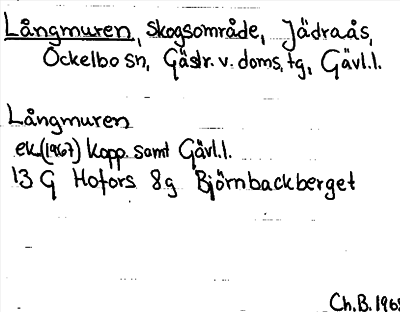 Långmuren, skogsområde, Jädraås,
Ockelbo sn, Gästr. v. doms. tg, Gävl.l.
Långmuren
ek. (1967) Kopp. samt Gävl.l.
13 G Hofors 8g Björnbackberget
Ch.B.